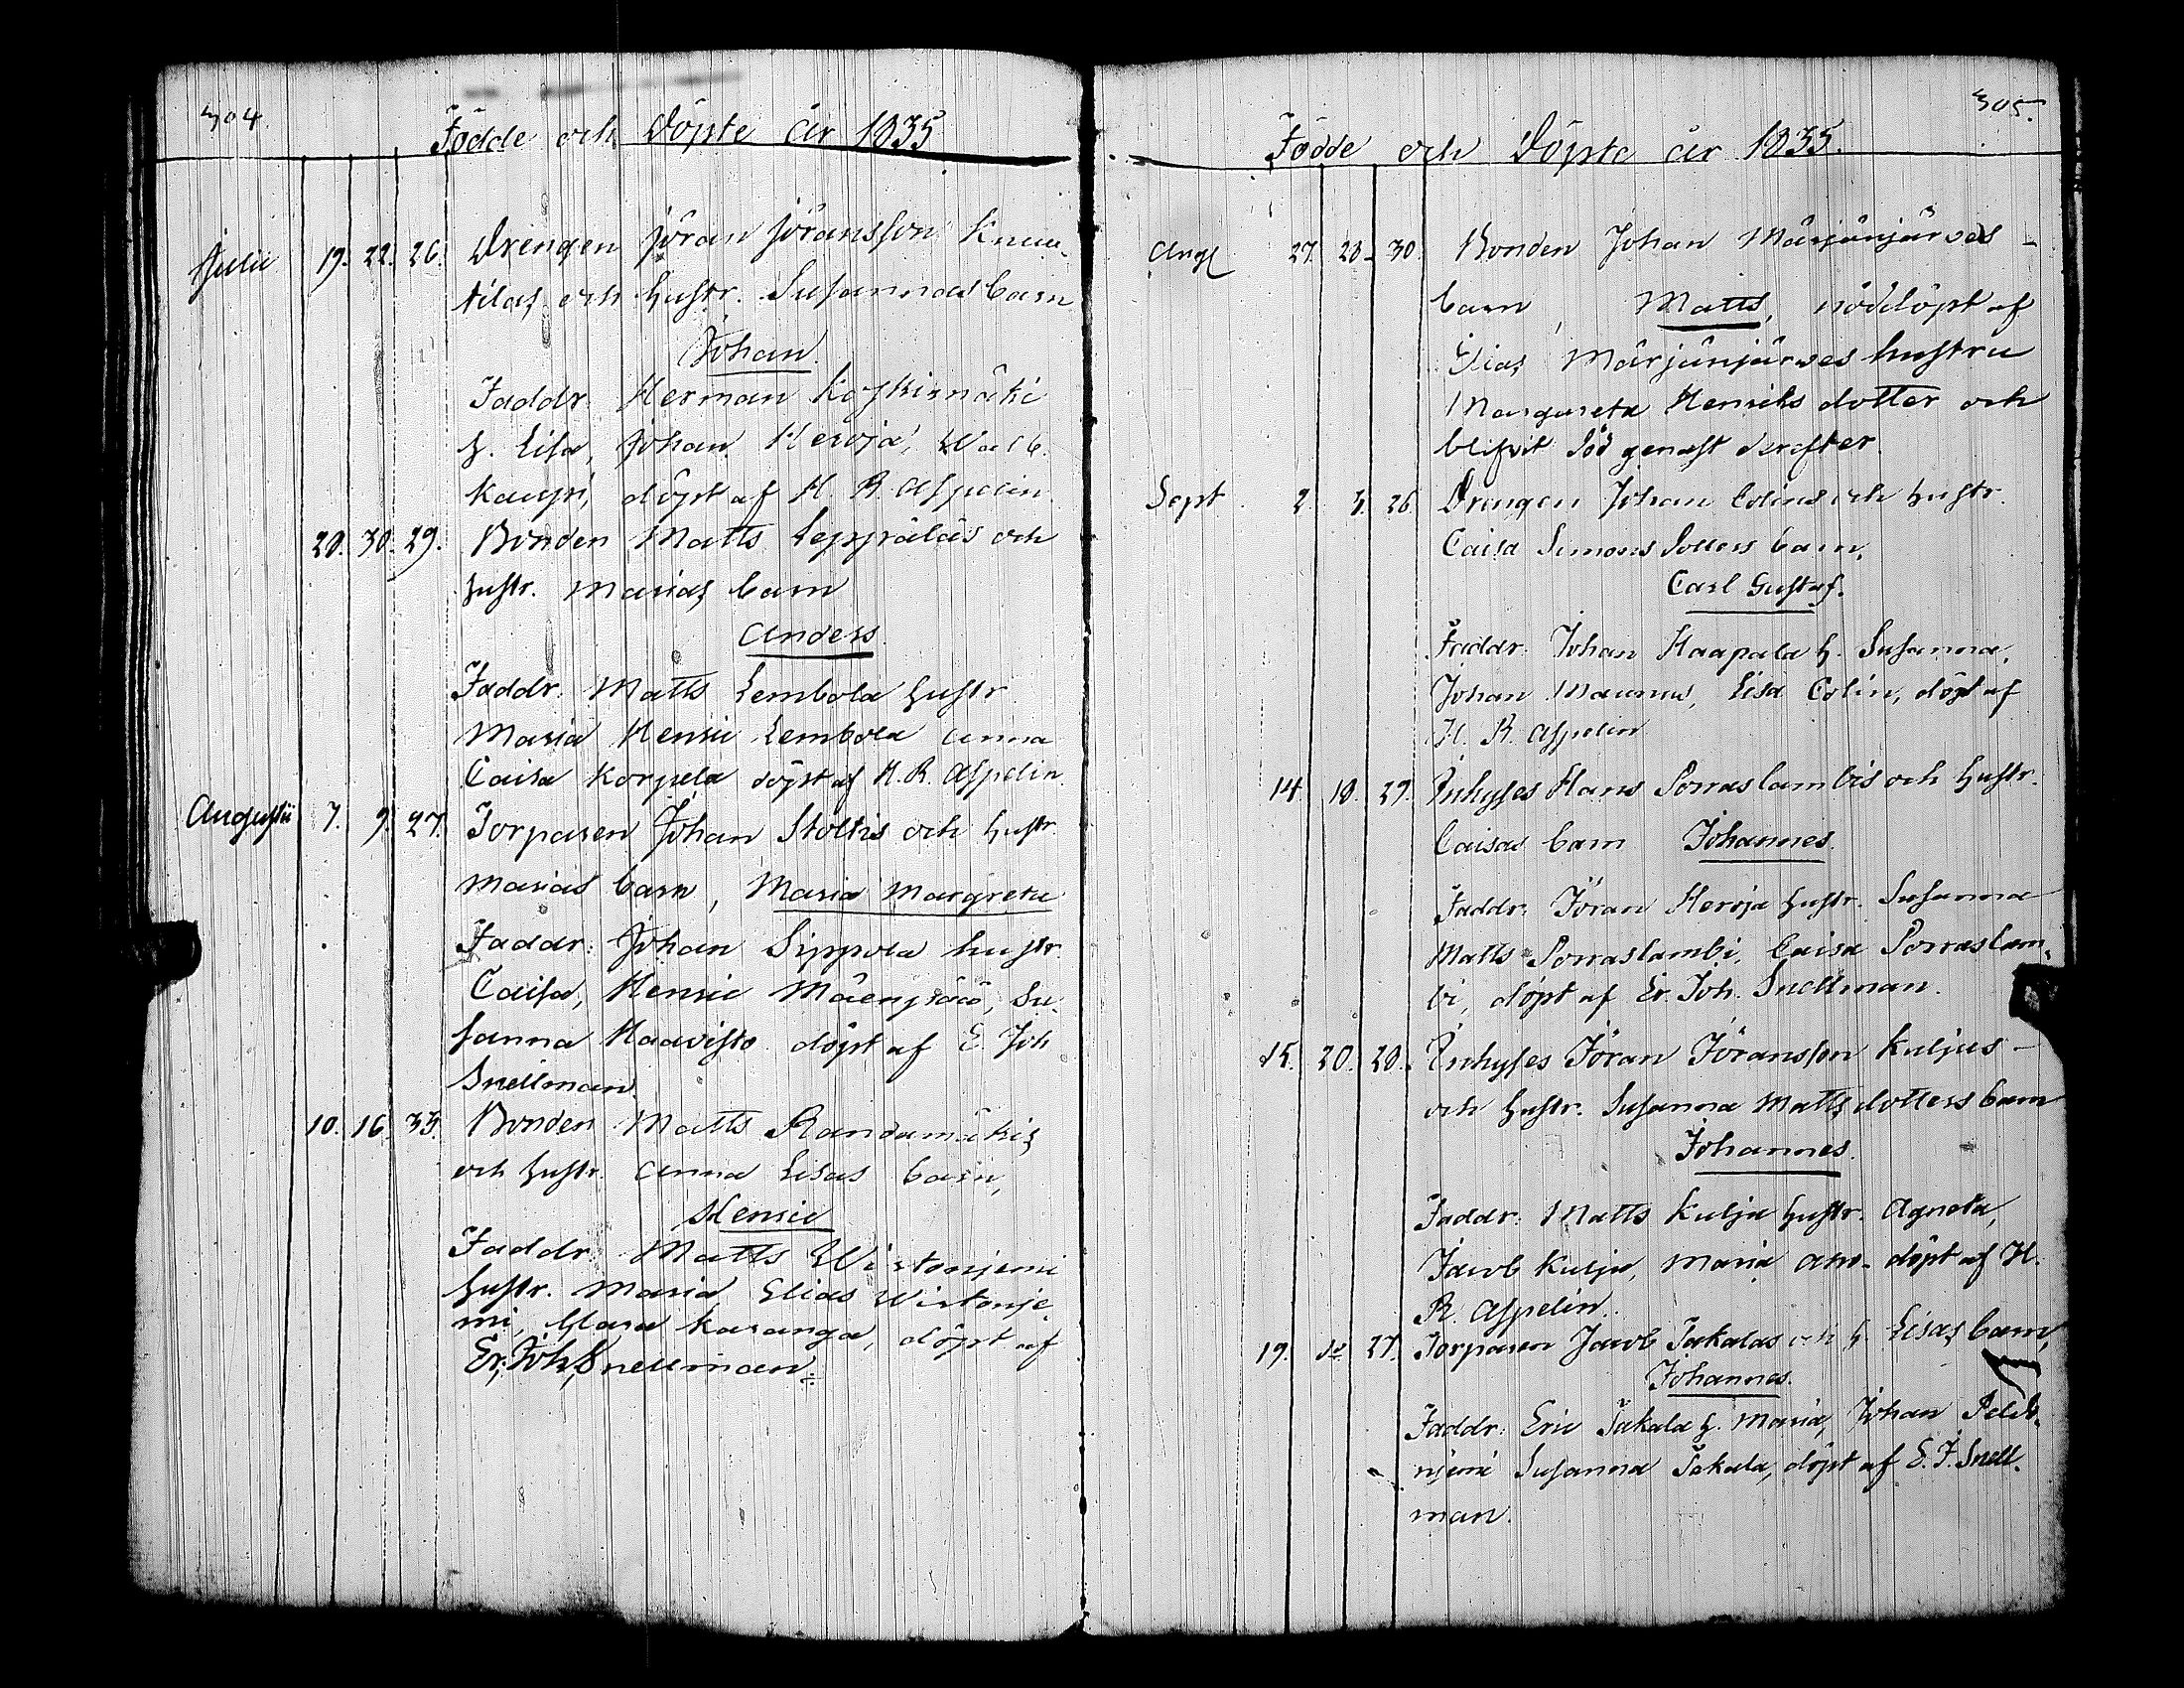 304.
Födde och Döpte år 1835
Julii 19. 22. 26. Drengen Jöran Jöransson Knuu-
tilas och hustr. Susannas barn
Johan.
Faddr. Herman Koskismäki
h. Lisa, Johan Heroja, Walb.
Kaupi, döpt af H. R. Aspelin
28. 30. 29. Bonden Matts Leppäläs och
hustr. Marias barn
Anders.
Faddr. Matts Lembola hustr.
Maria Henric Lembola Anna
Caisa Korpela döpt af H. R. Aspelin.
Augustii 7. 9. 27. Torparen Johan Stoltis och hustr.
Marias barn, Maria Margreta
Faddr: Johan Sippola hustr.
Caisa, Henric Mäenpää, Su-
sanna Haavisto döpt af E. Joh
Snellman.
10. 16. 35. Bonden Matts Randamäkis
och hustr. Anna Lisas barn,
Henric
Faddr. Matts Wirtaniemi
hustr. Maria, Elias Wirtanie
mi, Clara Karanga, döpt af
Er. Joh. Snellman
305.
Födde och Döpte år 1835.
Aug 27. 28. 30. Bonden Johan Märjänjärves
barn, Matts, nöddöpt af
Elias Märjänjärves hustru
Margareta Henriks dotter och
blifvit död genast derefter.
Sept. 2. 3. 26. Drengen Johan Colins och hustr.
Caisa Simons dotters barn,
Carl Gustaf.
Faddr. Johan Haapala h. Susanna,
Johan Maunus, Lisa Colin, döpt af
H. R. Aspelin
14. 18. 29. Inhyses Hans Porraslambis och hustr.
Caisas barn Johannes.
Faddr: Jöran Heroja hustr. Susanna
Matts Porraslambi, Caisa Porraslam-
bi, döpt af Er. Joh. Snellman.
15. 20. 28. Inhyses Jöran Jöransson Kuljus
och hustr. Susanna Matts dotters barn
Johannes.
Faddr: Matts Kulju hustr. Agneta,
Jacob Kulju, Maria Aho döpt af H.
R. Aspelin.
19. do 27. Torparen Jacob Takalas och h. Lisas barn,
Johannes.
Faddr: Eric Takala h. Maria, Johan Peldo-
niemi Susanna Takala, döpt af E. J. Snell-
man.